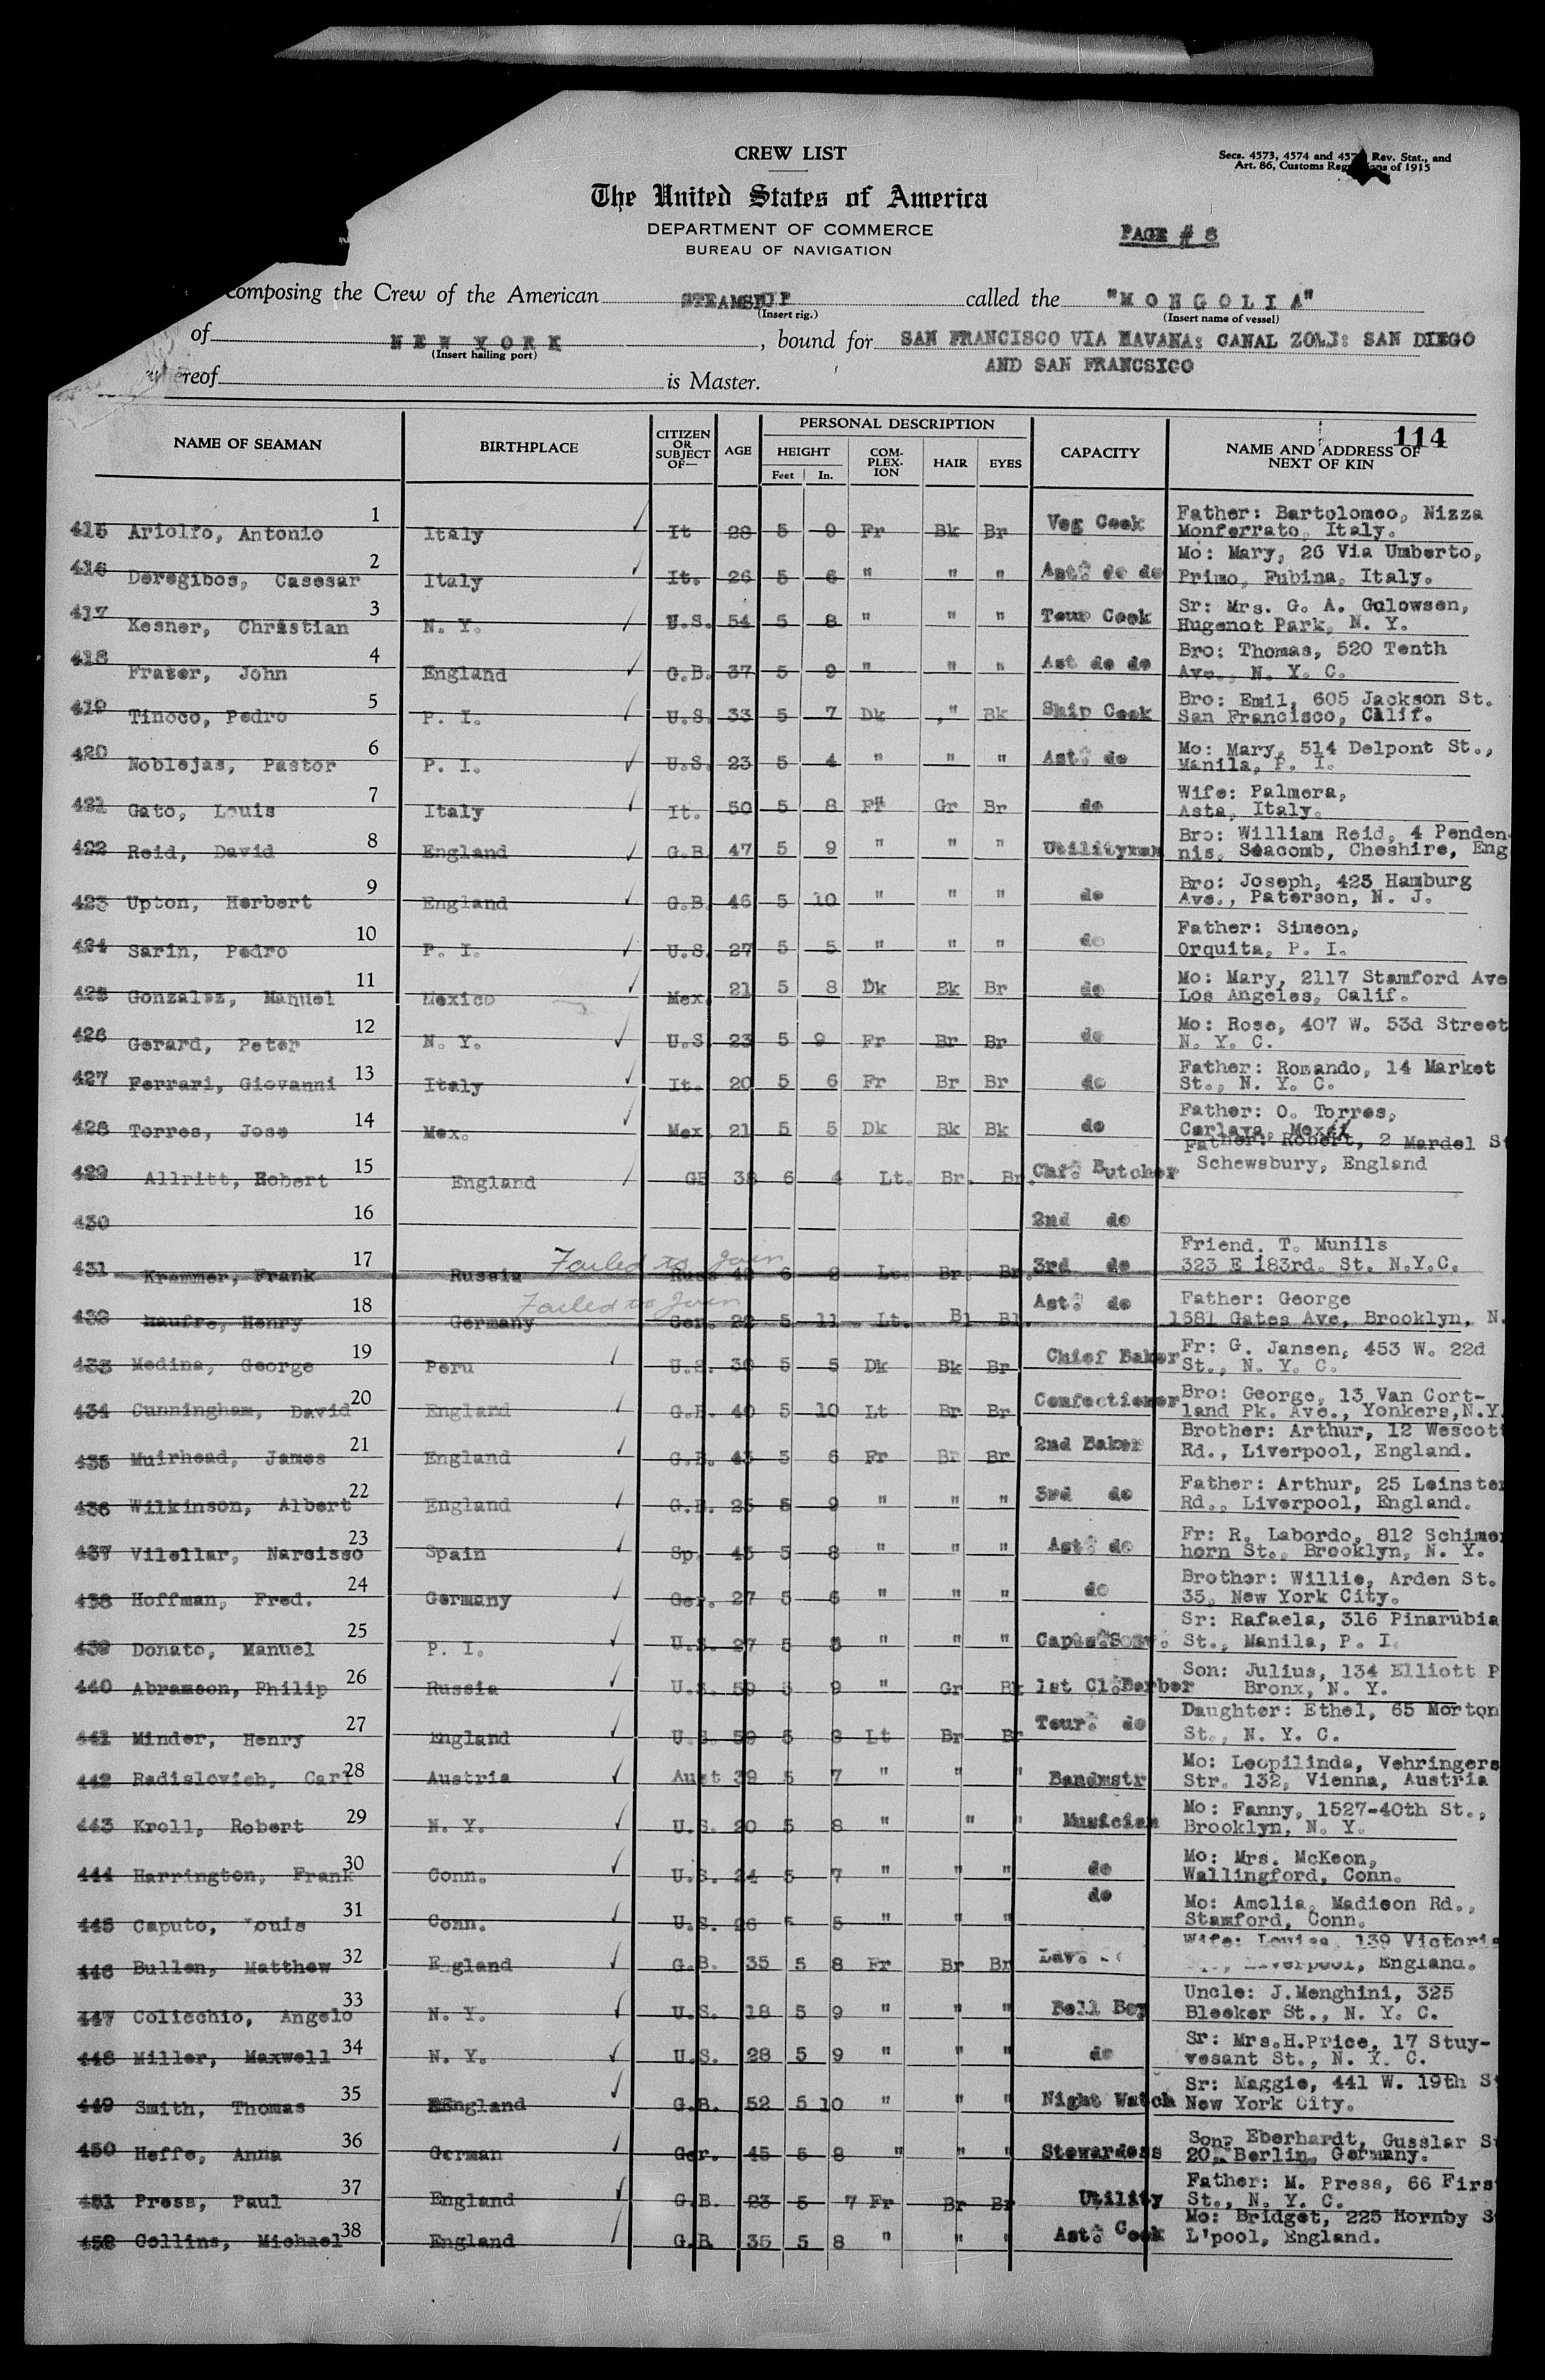 CREW LIST
Secs. 4573, 4574 and 457 Rev. Stat., and
Art. 86, Customs Reg ons of 1915
The United States of America
DEPARTMENT OF COMMERCE
PAGE # 8
BUREAU OF NAVIGATION
composing the Crew of the American STEAMSHIP called the "MONGOLIA"
(Insert rig.) (Insert name of vessel)
of NEW YORK, bound for SAN FRANCISCO VIA HAVANA: CANAL ZONE: SAN DIEGO
(Insert hailing port)
AND SAN FRANCSICO
ereof is Master.
114
NAME OF SEAMAN BIRTHPLACE CITIZEN OR SUBJECT OF— AGE PERSONAL DESCRIPTION CAPACITY NAME AND ADDRESS OF NEXT OF KIN
HEIGHT COM-PLEX-ION HAIR EYES
Feet In.
415 Ariolfo, Antonio 1 Italy It 28 5 9 Fr Bk Br Veg Cook Father: Bartolomeo, Nizza
Monferrato, Italy.
416 Deregibos, Casesar 2 Italy It. 26 5 6 " " " Ast: do do Mo: Mary, 26 Via Umberto,
Primo, Fubina, Italy.
417 Kesner, Christian 3 N. Y. U.S. 54 5 8 " " " Tour Cook Sr: Mrs. G. A. Golowsen,
Hugenot Park, N. Y.
418 Frater, John 4 England G.B. 37 5 9 " " " Ast do do Bro: Thomas, 520 Tenth
Ave., N. Y. C.
419 Tinoco, Pedro 5 P. I. U.S. 33 5 7 Dk " Bk Ship Cook Bro: Emil, 605 Jackson St.
San Francisco, Calif.
420 Noblejas, Pastor 6 P. I. U.S. 23 5 4 " " " Ast: do Mo: Mary, 514 Delpont St.,
Manila, P. I.
421 Gato, Louis 7 Italy It. 50 5 8 Fr Gr Br do Wife: Palmera,
Asta, Italy.
422 Reid, David 8 England G.B. 47 5 9 " " " Utilityman Bro: William Reid, 4 Penden-
nis, Seacomb, Cheshire, Eng
423 Upton, Herbert 9 England G.B. 46 5 10 " " " do Bro: Joseph, 425 Hamburg
Ave., Paterson, N. J.
424 Sarin, Pedro 10 P. I. U.S. 27 5 5 " " " do Father: Simeon,
Orquita, P. I.
425 Gonzalez, Manuel 11 Mexico Mex. 21 5 8 Dk Bk Br do Mo: Mary, 2117 Stamford Ave
Los Angeles, Calif.
426 Gerard, Peter 12 N. Y. U.S. 23 5 9 Fr Br Br do Mo: Rose, 407 W. 53d Street
N. Y. C.
427 Ferrari, Giovanni 13 Italy It. 20 5 6 Fr Br Br do Father: Romando, 14 Market
St., N. Y. C.
428 Torres, Jose 14 Mex. Mex. 21 5 5 Dk Bk Bk do Father: O. Torres,
Carlava, Mex.
429 Allritt, Robert 15 England GB 38 6 4 Lt. Br. Br. Chf: Butcher Father: Robert, 2 Mardel St
Schewsbury, England
430 16 2nd do
431 Krammer, Frank 17 Russia Failed to join Russ 42 6 2 Lt. Br. Br. 3rd do Friend. T. Munils
323 E 183rd. St. N.Y.C.
432 Henry 18 Germany Failed to join Ger. 22 5 11 Lt. Bl Bl. Ast: do Father: George
1581 Gates Ave, Brooklyn, N.
433 Medina, George 19 Peru U.S. 30 5 5 Dk Bk Br Chief Baker Fr: G. Jansen, 453 W. 22d
St., N. Y. C.
434 Cunningham, David 20 England G.B. 40 5 10 Lt Br Br Confectioner Bro: George, 13 Van Cort-
land Pk. Ave., Yonkers,N.Y.
435 Muirhead, James 21 England G.B. 43 5 6 Fr Br Br 2nd Baker Brother: Arthur, 12 Wescott
Rd., Liverpool, England.
436 Wilkinson, Albert 22 England G.B. 25 5 9 " " " 3rd do Father: Arthur, 25 Leinster
Rd., Liverpool, England.
437 Vilellar, Narcisso 23 Spain Sp. 43 5 8 " " " Ast: do Fr: R. Labordo, 812 Schimer
horn St., Brooklyn, N. Y.
438 Hoffman, Fred. 24 Germany Ger. 27 5 6 " " " do Brother: Willie, Arden St.
35, New York City.
439 Donato, Manuel 25 P. I. U.S. 27 5 3 " " " Capts Serv. Sr: Rafaela, 316 Pinarubia
St., Manila, P. I.
440 Abramson, Philip 26 Russia U.S. 59 5 9 " Gr Bk 1st Cl.Barber Son: Julius, 134 Elliott P
Bronx, N. Y.
441 Minder, Henry 27 England U.S. 59 5 8 Lt Br Br Tour: do Daughter: Ethel, 65 Morton
St., N. Y. C.
442 Radislovich, Carl 28 Austria Aust 39 5 7 " " " Bandmstr Mo: Leopilinda, Vehringers
Str. 132, Vienna, Austria
443 Kroll, Robert 29 N. Y. U.S. 20 5 8 " " " Musician Mo: Fanny, 1527-40th St.,
Brooklyn, N. Y.
444 Harrington, Frank 30 Conn. U.S. 24 5 7 " " " do Mo: Mrs. McKeon,
Wallingford, Conn.
445 Caputo, Louis 31 Conn. U.S. 26 5 5 " " " do Mo: Amelia, Madison Rd.,
Stamford, Conn.
446 Bullen, Matthew 32 England G.B. 35 5 8 Fr Br Br Lav. Wife: Louisa, 139 Victoria
Liverpool, England.
447 Colicchio, Angelo 33 N. Y. U.S. 18 5 9 " " " Bell Boy Uncle: J.Menghini, 325
Bleeker St., N. Y. C.
448 Miller, Maxwell 34 N. Y. U.S. 28 5 9 " " " do Sr: Mrs.H.Price, 17 Stuy-
vesant St., N. Y. C.
449 Smith, Thomas 35 England G.B. 52 5 10 " " " Night Watch Sr: Maggie, 441 W. 19th St
New York City.
450 Heffe, Anna 36 German Ger. 45 5 8 " " " Stewardess Son: Eberhardt, Gusslar St
20, Berlin, Germany.
451 Press, Paul 37 England G.B. 23 5 7 Fr Br Br Utility Father: M. Press, 66 Firs
St., N. Y. C.
452 Collins, Michael 38 England G.B. 35 5 8 " " " Ast: Cook Mo: Bridget, 225 Hornby S
L'pool, England.